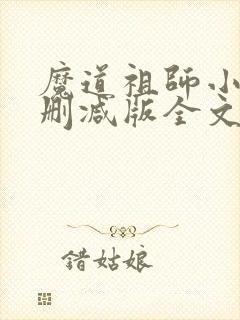 魔道祖師小
刪减版全文
錯姑娘